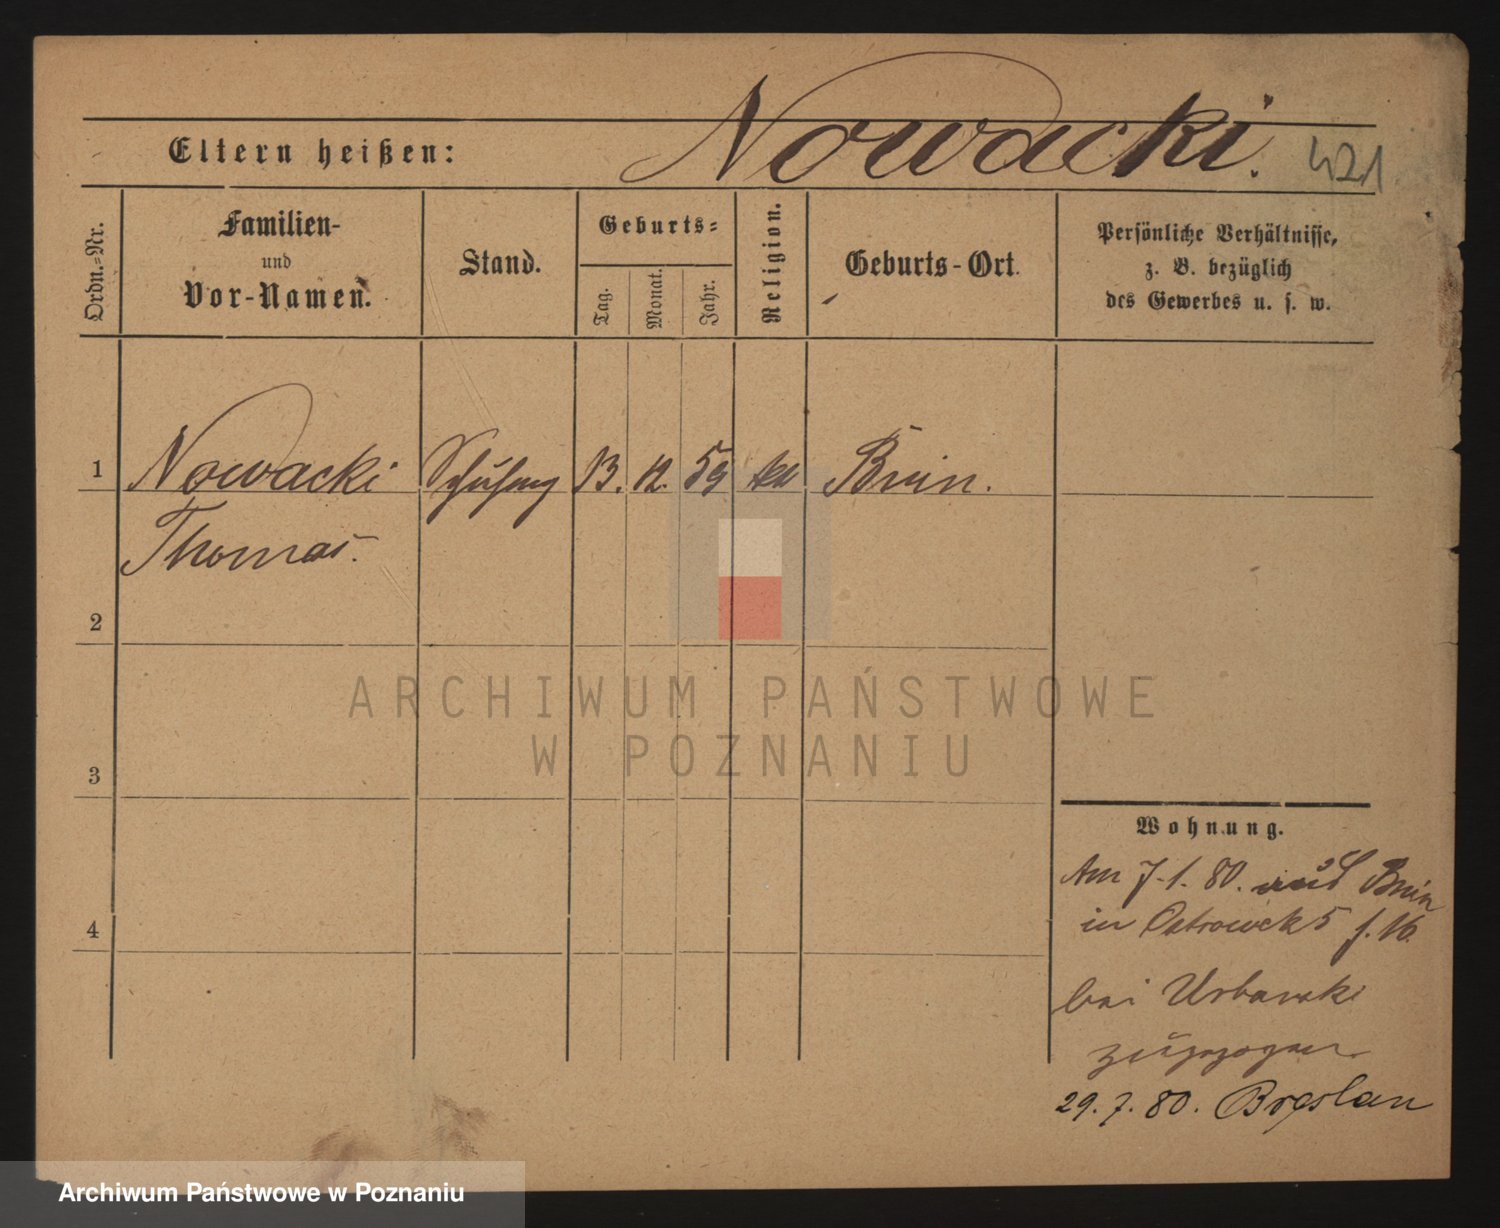 Nowacki.
Eltern heißen:
421
Ordn.-Nr.
Familien-
und
Vor-Namen.
Stand.
Geburts-
Tag.
Monat.
Jahr.
Religion.
Geburts-Ort.
Persönliche Verhältnisse,
z. B. bezüglich
des Gewerbes u. s. w.
1
Nowacki
13. 12. 59
Bnin.
Thomas.
2
ARCHIWUM PAŃSTWOWE
W POZNANIU
3
Wohnung.
Am 7.1.80. aus Bnin
in Ostrowek 5 f. 16.
4
bei Urbanski
zugezogen
29. 7. 80. Breslau
Archiwum Państwowe w Poznaniu